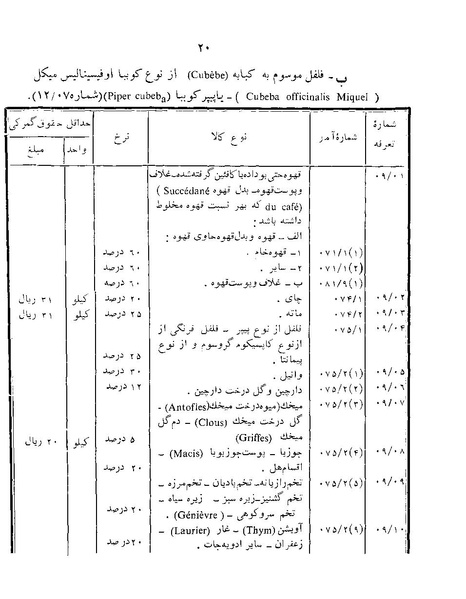 ۲۰
ب- فلفل موسوم به کبابه (Cubèbe) از نوع کوببا اوفیسینالیس میکل
( Cubeba officinalis Miquel ) - یاپیپر کوببا (Piper cubeba)(شماره ۱۲/۰۷۵).
شمارهٔ تعرفه شمارهٔ آمار نوع کالا نرخ حداقل حقوق گمرکی
واحد مبلغ
۰۹/۰۱ قهوه‌حتی بوداده یا کافئین گرفته‌شده-غلاف
وپوست‌قهوه- بدل قهوه (Succédané
du café) که بهر نسبت قهوه مخلوط
داشته باشد:
الف - قهوه وبدل‌قهوه‌حاوی قهوه:
۰۷۱/۱(۱) ۱- قهوه‌خام. ۶۰ درصد
۰۷۱/۱(۲) ۲- سایر. ۶۰ درصد
۰۸۱/۹(۱) ب - غلاف وپوست‌قهوه. ۶۰ درصد
۰۹/۰۲ ۰۷۴/۱ چای. ۲۰ درصد کیلو ۳۱ ریال
۰۹/۰۳ ۰۷۴/۲ ماته. ۲۵ درصد کیلو ۳۱ ریال
۰۹/۰۴ ۰۷۵/۱ فلفل از نوع پیپر - فلفل فرنگی از
ازنوع کاپسیکوم گروسوم و از نوع
پیمانتا. ۲۵ درصد
۰۹/۰۵ ۰۷۵/۲(۱) وانیل. ۳۰ درصد
۰۹/۰۶ ۰۷۵/۲(۲) دارچین وگل درخت دارچین. ۱۲ درصد
۰۹/۰۷ ۰۷۵/۲(۳) میخک(میوه‌درخت میخک(Antofles) -
گل درخت میخک (Clous) - دم‌گل
میخک (Griffes) ۵ درصد کیلو ۲۰ ریال
۰۹/۰۸ ۰۷۵/۲(۴) جوزبا - پوست‌جوزبویا (Macis) -
اقسام‌هل. ۲۰ درصد
۰۹/۰۹ ۰۷۵/۲(۵) تخم‌رازیانه- تخم‌بادیان - تخم‌مرزه -
تخم گشنیز-زیره سبز - زیره سیاه -
تخم سروکوهی - (Génièvre). ۲۰ درصد
۰۹/۱۰ ۰۷۵/۲(۹) آویشن (Thym) - غار (Laurier) -
زعفران - سایر ادویه‌جات. ۲۰درصد